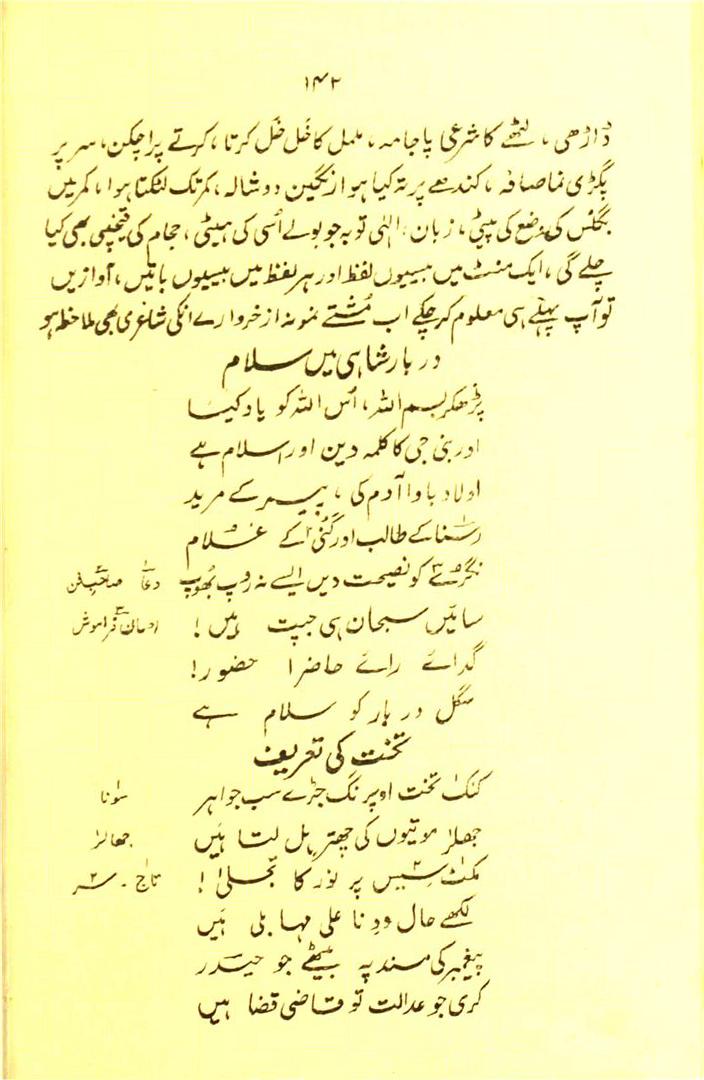 ۱۴۲
ڈاڑھی، لٹھے کا شرعی پاجامہ، ململ کا خَل خَل کرتا، کرتے پر اچکن، سر پر
پگڑی نما صافہ، کندھے پر تہ کیا ہوا رنگین دوشالہ، کمر تک لٹکتا ہوا، کمر میں
بگلس کی وضع کی پیٹی، زبان، الٰہی توبہ جو بولے اُسی کی ہیٹی، حجام کی قینچی بھی کیا
چلے گی، ایک منٹ میں بیسیوں لفظ اور ہر لفظ میں بیسیوں باتیں، آوازیں
تو آپ پہلے ہی معلوم کر چکے اب مُشتے نمونہ از خروارے انکی شاعری بھی ملاحظہ ہو
دربار شاہی میں سلام
پڑھکر بسم اللہ، اُس اللہ کو یاد کیا
اور نبی جی کا کلمہ دین اور اسلام ہے
اولاد باوا آدم کی، پیر کے مرید
رسنا کے طالب اور گُنی کے غلام
نگرے کو نصیحت دیں ایسے نہ روپ بھوپ دعا صاحبِ فن
سائیں سبحان ہی جپت ہیں! احسان فراموش
گدائے رائے حاضر حضور!
سگل دربار کو سلام ہے
تخت کی تعریف
کنک تخت اوپر نگ جڑے سب جواہر سونا
جھلر موتیوں کی چھتر پل لتا ہیں جھالر
مکٹ سیس پر نور کا تجلیٰ! تاج ۔ ۲ سر
لکھے حال ودنا علی مہابلی ہیں
پیغمبر کی مسند پہ بیٹھے جو حیدر
کری جو عدالت تو قاضی قضا ہیں